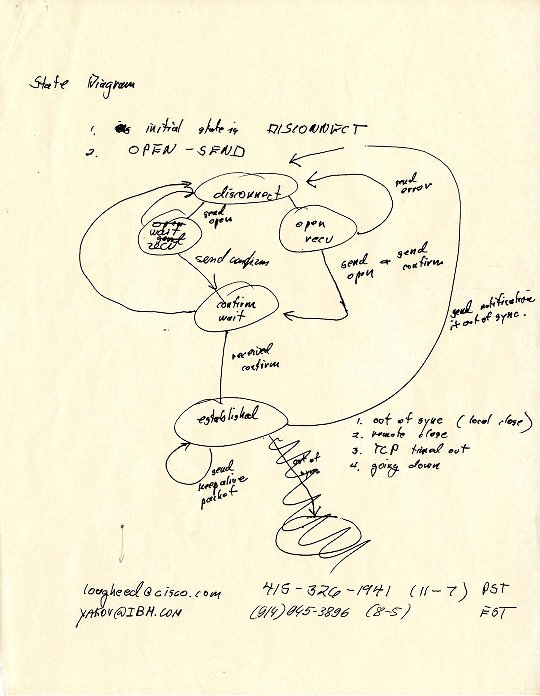 State Diagram
1. initial state is DISCONNECT
2. OPEN - SEND
disconnect
send
error
send
open
open
wait
send
recv
open
recv
send confirm
send & send
open confirm
confirm
wait
send notification
if out of sync.
received
confirm
established
1. out of sync (local close)
2. remote close
3. TCP timed out
4. going down
out of
sync
send
keepalive
packet
lougheed@cisco.com 415-326-1941 (11-7) PST
YAKOV@IBM.COM (914) 945-3896 (8-5) EST